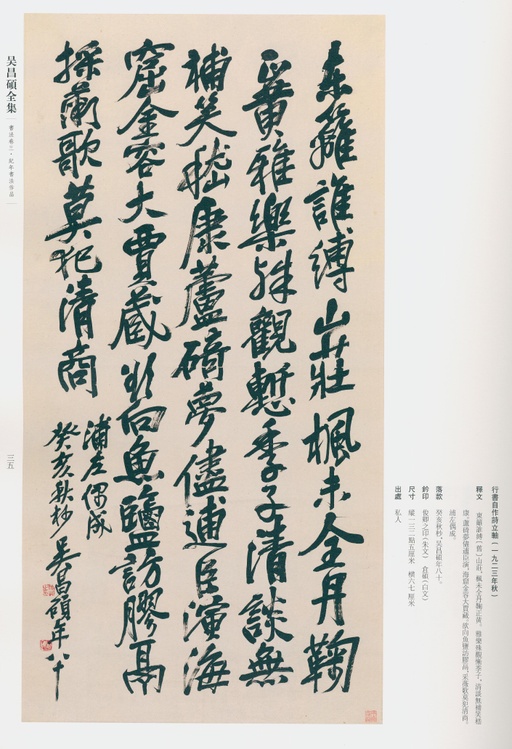 吴昌碩全集
書法卷二·紀年書法作品
三五
東籬誰縛山莊楓未全丹鞠
正黃雅樂殊觀慙季子清談無
補笑嵇康蘆碕夢儘逋臣演海
窟金容大賈藏欲向魚鹽訪膠鬲
採薇歌莫犯清商
浦左偶成
癸亥秋杪吳昌碩年八十
行書自作詩立軸(一九二三年秋)
釋文 東籬誰縛(舊)山莊,楓未全丹鞠正黃。雅樂殊觀慚季子,清談無補笑嵇
康。蘆碕夢儘逋臣演,海窟金容大賈藏。欲向魚鹽訪膠鬲,采薇歌莫犯清商。
落款 癸亥秋杪,吳昌碩年八十。
浦左偶成。
鈐印 俊卿之印(朱文) 倉碩(白文)
尺寸 縱一三二點五厘米 橫六七厘米
出處 私人